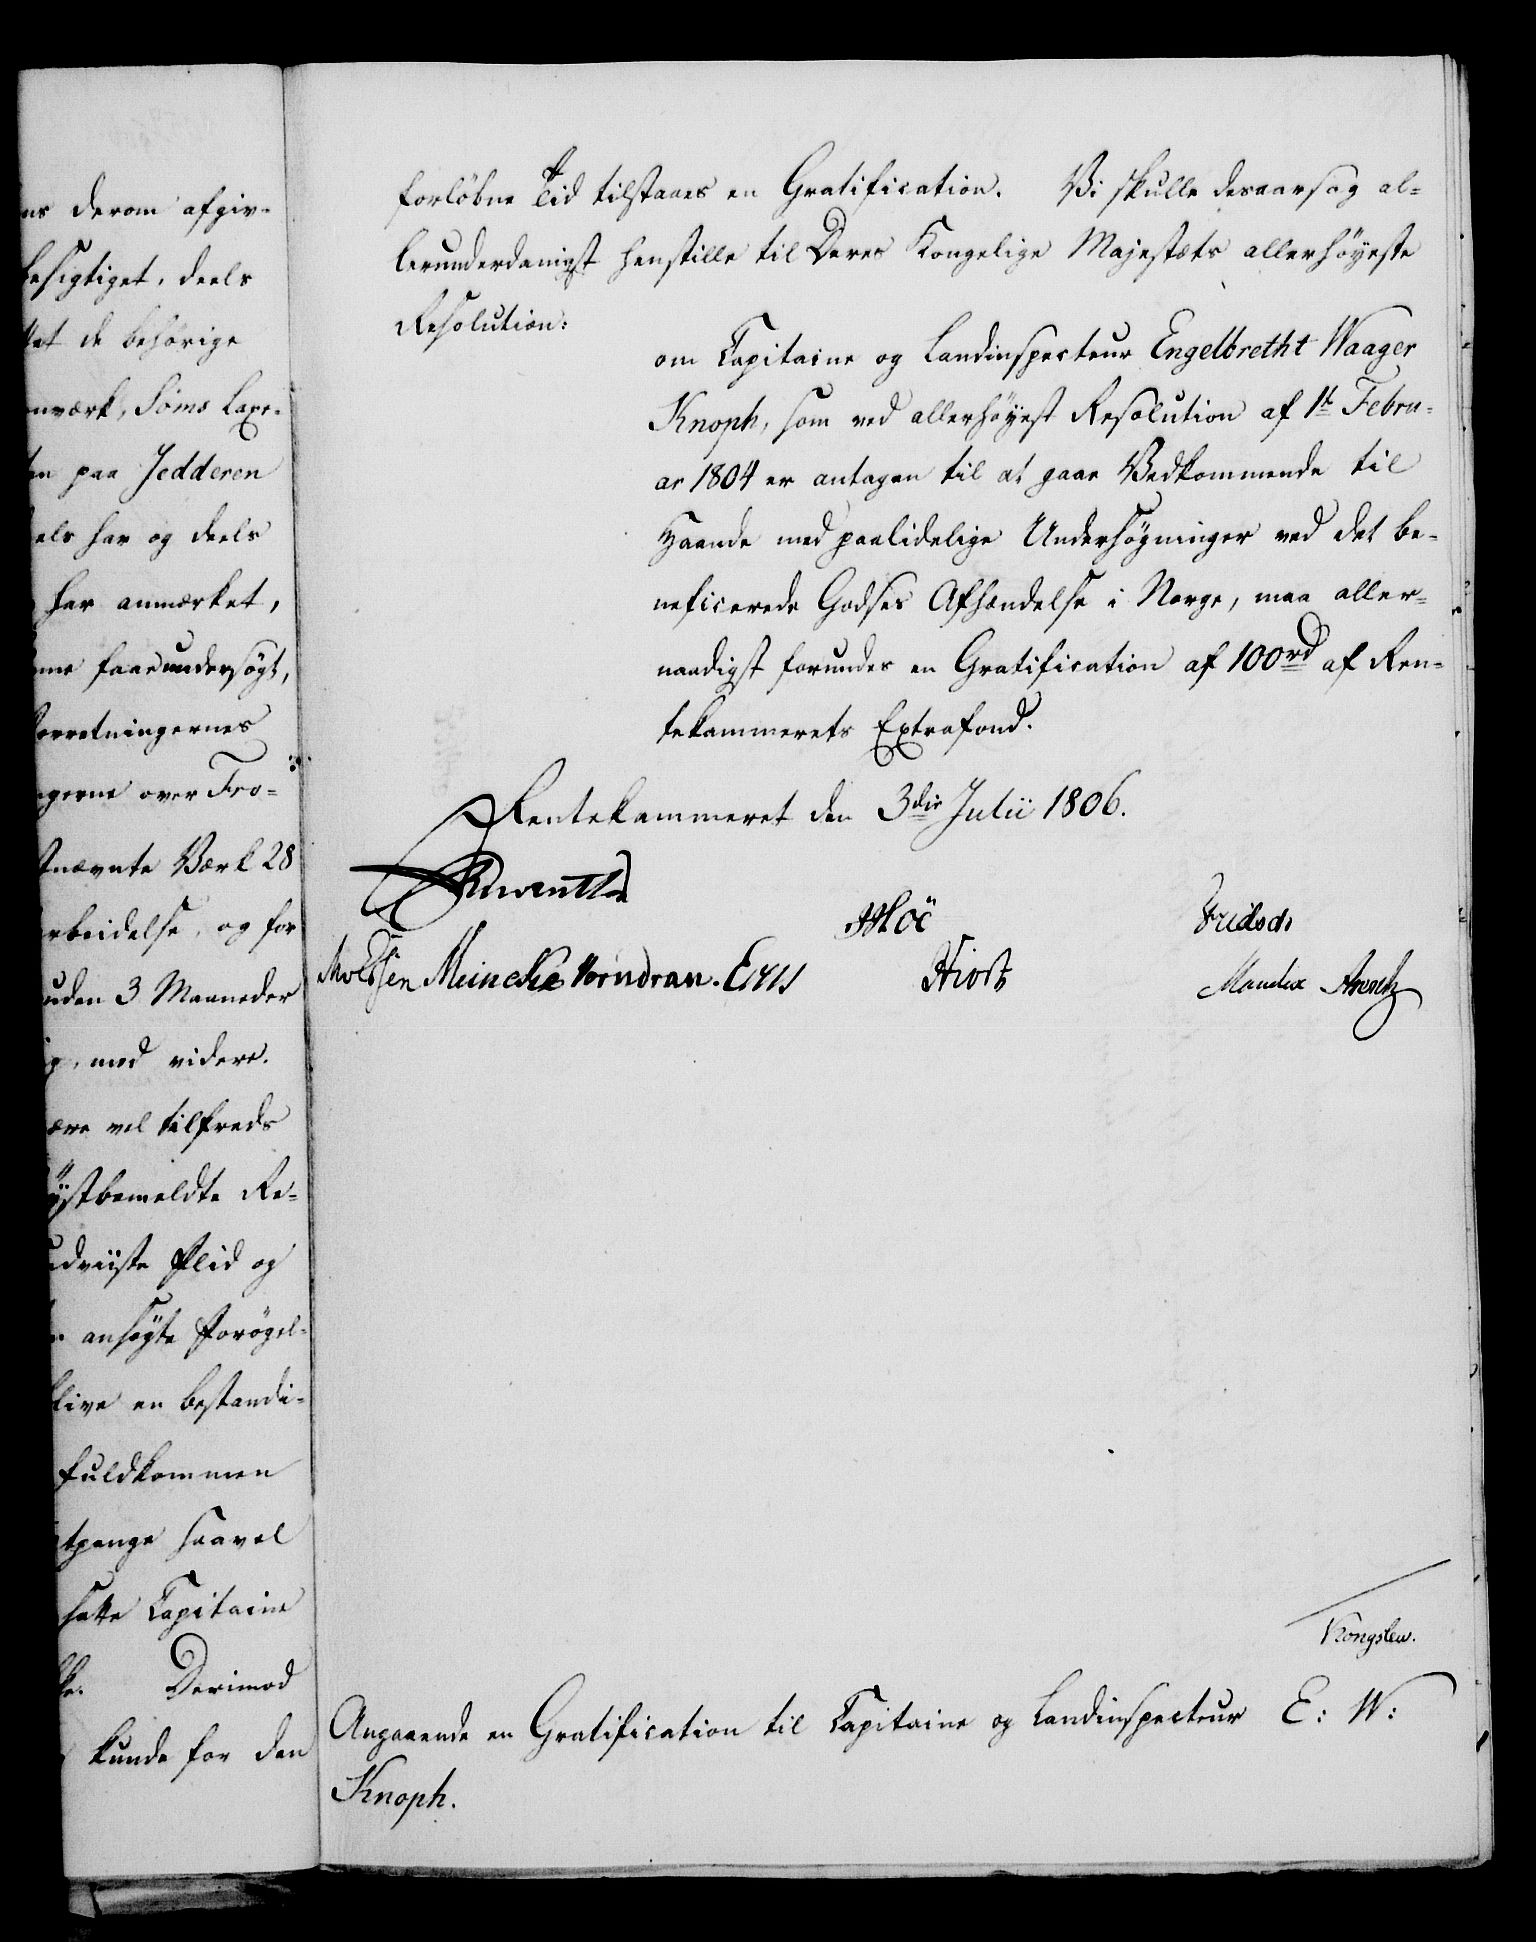 ns derom afgiv-
besigtiget, deels
tet de behörige
nværk, Söms Laxe-
ten paa Jedderen
deels har og deels
har anmærket,
nne faae undersögt,
Forretningernes
ngerne over Fro-
stnævnte Værk 28
rbeidelse, og for
uden 3 Maaneder
g, med videre.
ære vel tilfreds
ÿstbemeldte Re-
udviiste Flid og
n ansögte Forögel-
blive en bestandi-
fuldkommen
tpenge saavel
satte Capitaine
ke. Derimod
kunde for den
forløbne Tid tilstaaes en Gratification. Vi skulle desaarsag al-
lerunderdanigst henstille til Deres Kongelige Majestæts allerhöÿeste
Resolution:
om Capitaine og Landinspecteur Engelbretht Waager
Knoph, som ved allerhöÿest Resolution af 1t Febru-
ar 1804 er antagen til at gaae Vedkommende til
Haande med paalidelige Undersögninger ved det be-
neficerede Godses Afhændelse i Norge, maa aller-
naadigst forundes en Gratification af 100rd af Ren-
tekammerets Extrafond.
Rentekammeret den 3die Julii 1806.
Reventlow
Moë
Fridsch
Moldsen Meincke Vorndran. Eyls Hiort Manthei Arentz
Kongslew.
Angaaende en Gratification til Capitaine og Landinspecteur E: W:
Knoph.